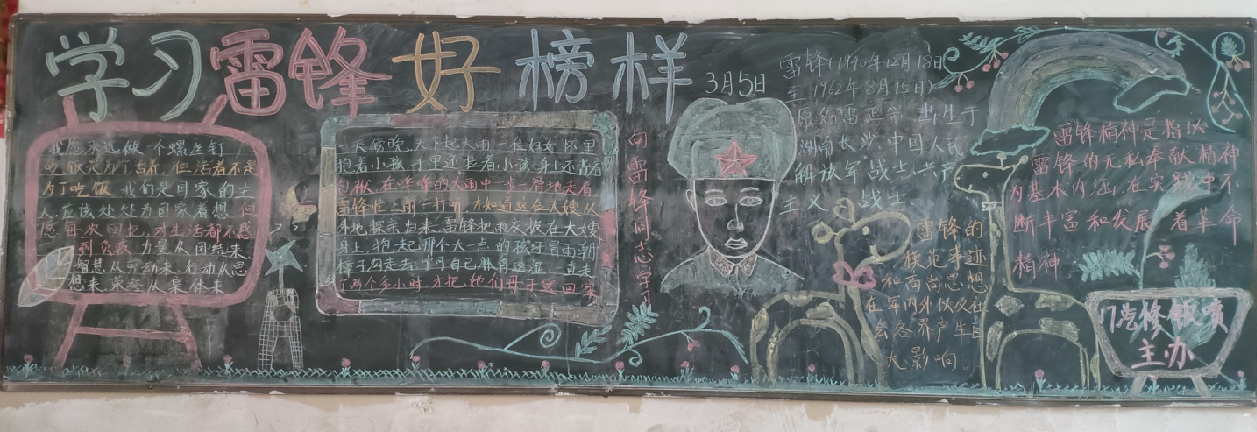 学习雷锋好榜样
3月5日
我愿永远做一个螺丝钉
吃饭是为了活着，但活着不是
为了吃饭 我们是国家的主
人 应该处处为国家着想
力量从团结来，
智慧从劳动来，行动从思
想来 荣誉从集体来
一天傍晚，天下起大雨 一位妇女怀里
抱着小孩 手里还拉着小孩 身上还背着
包袱 在哗哗的大雨中一步一滑地走着
雷锋忙上前一打听 才知道这位大嫂从
外地探亲归来，雷锋把雨衣披在大嫂
身上 抱起那个大一点的孩子冒雨朝
走去，可自己淋得透湿 一直走
了两个多小时 才把她们母子送回家
向雷锋同志学习
雷锋(1940年12月18日
至1962年8月15日)
原名雷正兴 出生于
湖南长沙，中国人民
解放军战士，共产
主义 战士
雷锋的
模范事迹
和高尚思想
在军内外以及社
会各界产生巨
大影响。
雷锋精神是指以
雷锋的无私奉献精神
为基本内涵，在实践中不
断丰富和发展 着革命
精神
主办